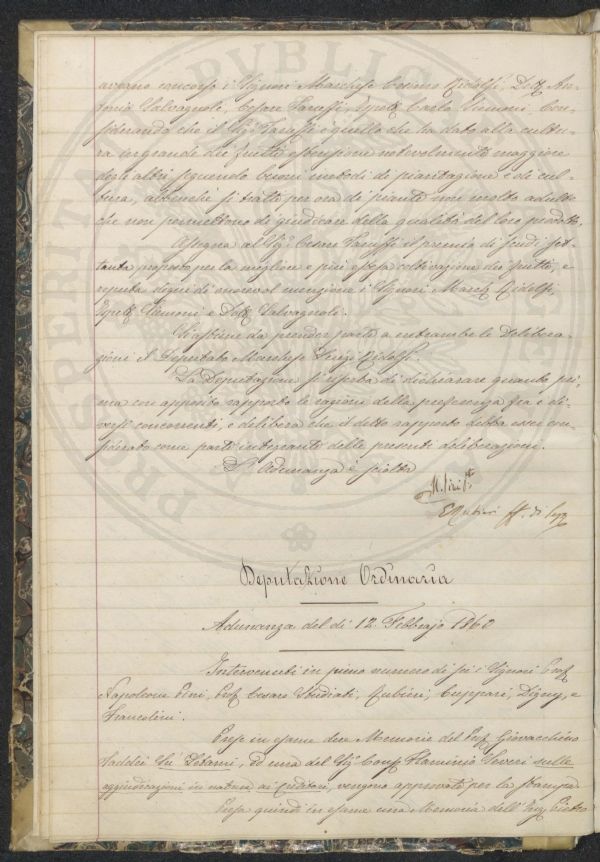 avevano concorso i Signori Marchese Cosimo Ridolfi, Dott. An-
tonio Salvagnoli, Cesare Taruffi, Cav. Carlo Siemoni. Con-
siderando che il Sig. Taruffi è quello che ha dato alla cultu-
ra in grande dei frutti estensione notevolmente maggiore
degli altri, seguendo buoni metodi di piantagione e di cul-
tura, abbenchè si tratti per ora di piante non molto adulte
che non permettono di giudicare della qualità del loro prodotto.
Assegna al Sig. Cesare Taruffi il premio di scudi set-
tanta proposto per la migliore e più estesa coltivazione dei frutti, e
reputa degni di onorevol menzione i Signori March. Ridolfi,
Siemoni e Dott. Salvagnoli.
Si astiene da prender parte a entrambe le Delibera-
zioni il Deputato Marchese Luigi Ridolfi.
La Deputazione si riserba di dichiarare quanto pri-
ma con apposito rapporto le ragioni della preferenza fra i di-
versi concorrenti, e delibera che il detto rapporto debba esser con-
siderato come parte integrante delle presenti deliberazioni.
L'Adunanza è sciolta
E Rubieri ff. di Seg.
Deputazione Ordinaria
Adunanza del dì 12 Febbrajo 1860
Intervenuti in pieno numero di sei i Signori Prof.
Napoleone Pini, Prof. Cesare Studiati, Rubieri, Cuppari, Digny, e
Francolini.
Prese in esame due Memorie del Prof. Giovacchino
Taddei Sui Letami, ed una del Sig. Flaminio Severi sulle
aggiudicazioni in natura ai Creditori, vengono approvate per la stampa.
Presa quindi in esame una Memoria dell'Ing. Pietro
PROSPERITATI PVBLICAE AVGENDAE